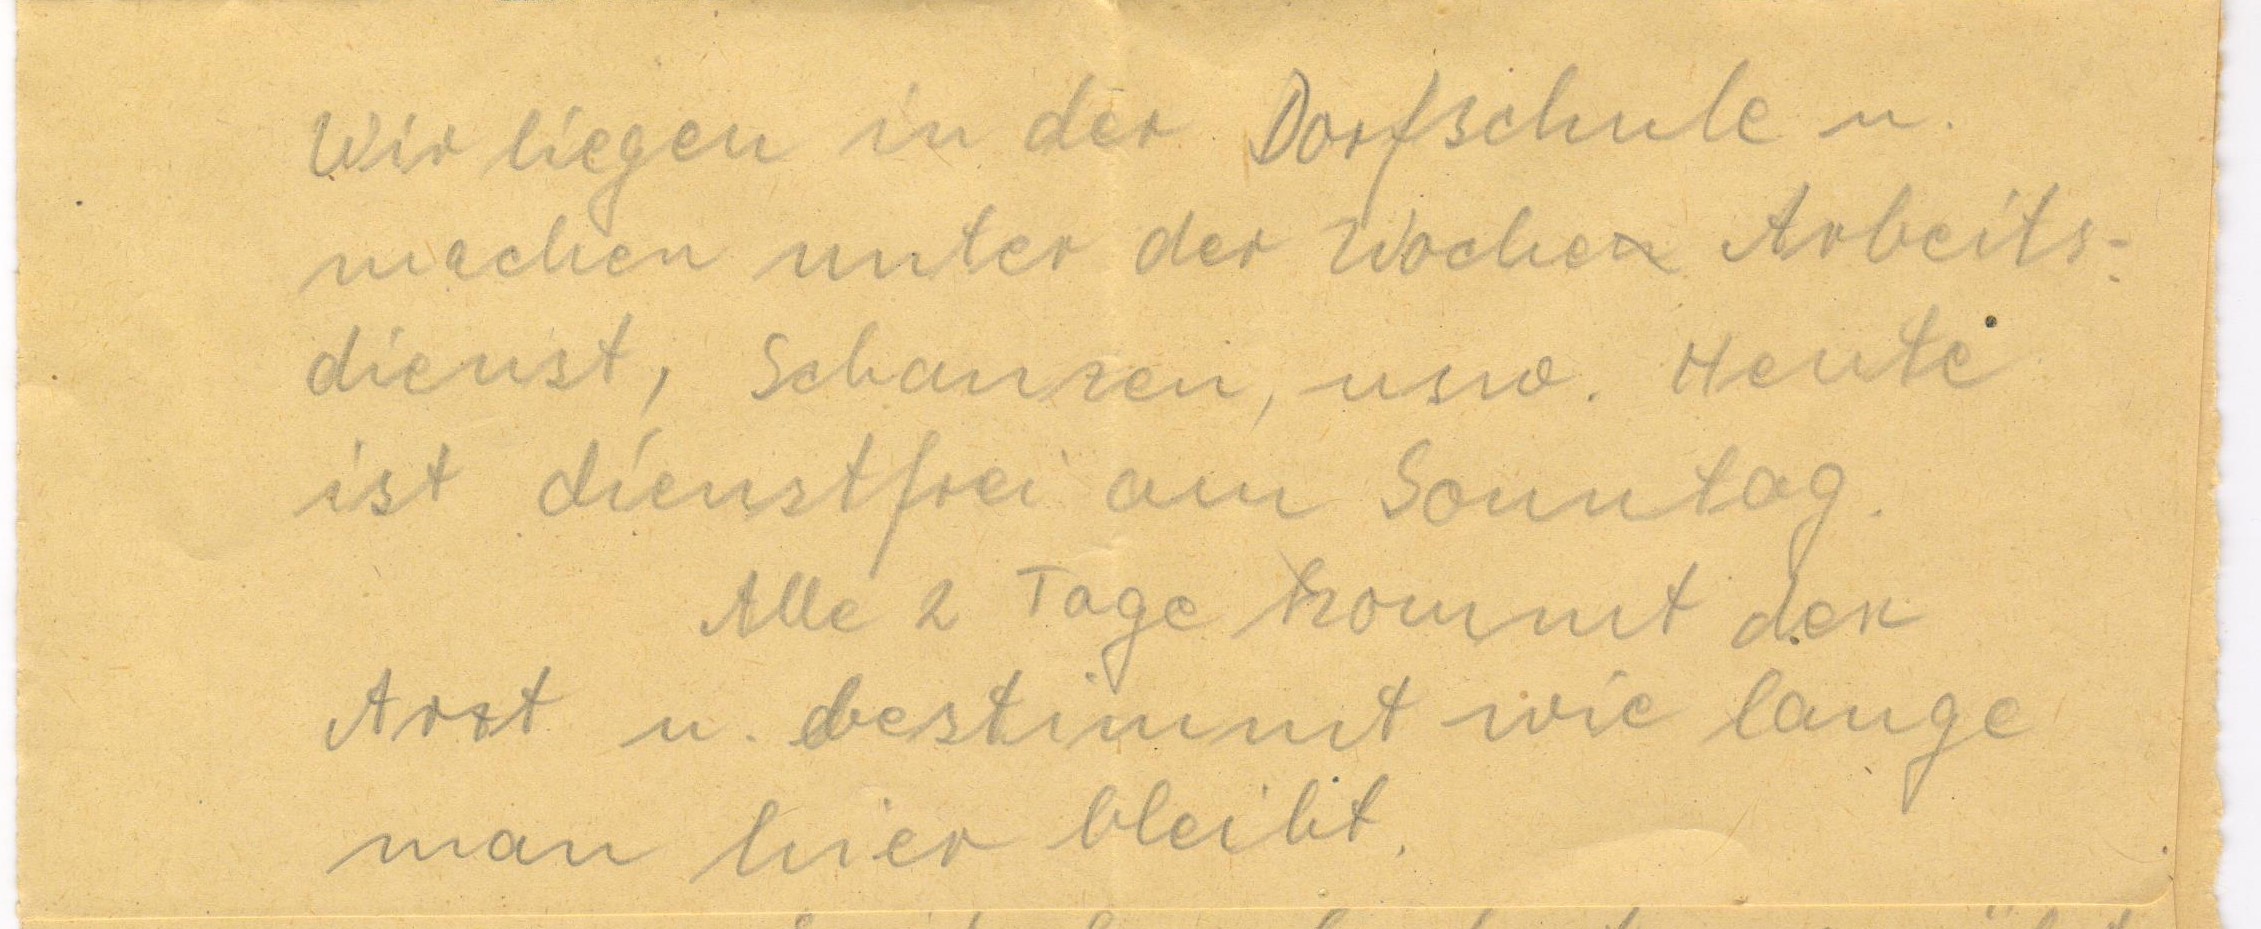 Wir liegen in der Dorfschule u.
machen unter der Wochen Arbeits-
dienst, Schanzen, usw. Heute
ist dienstfrei am Sonntag.
Alle 2 Tage kommt der
Arzt u. bestimmt wie lange
man hier bleibt.